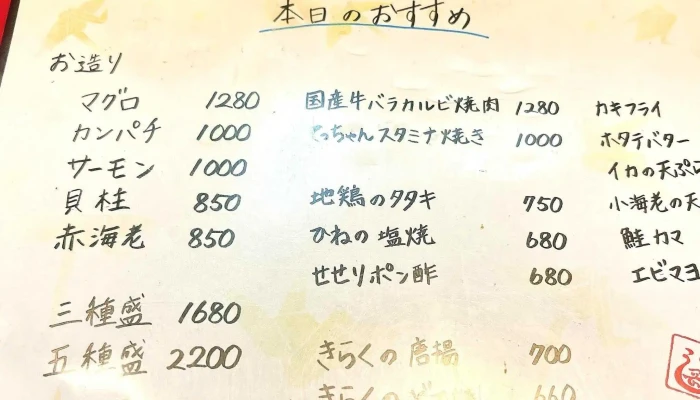 本日のおすすめ
お造り
マグロ 1280
カンパチ 1000
サーモン 1000
貝柱 850
赤海老 850
三種盛 1680
五種盛 2200
国産牛バラカルビ焼肉 1280
ちゃんスタミナ焼き 1000
地鶏のタタキ 750
ひねの塩焼 680
せせりポン酢 680
きらくの唐揚 700
きらくの 660
カキフライ
ホタテバター
イカの天ぷら
小海老の天
鮭カマ
エビマヨ